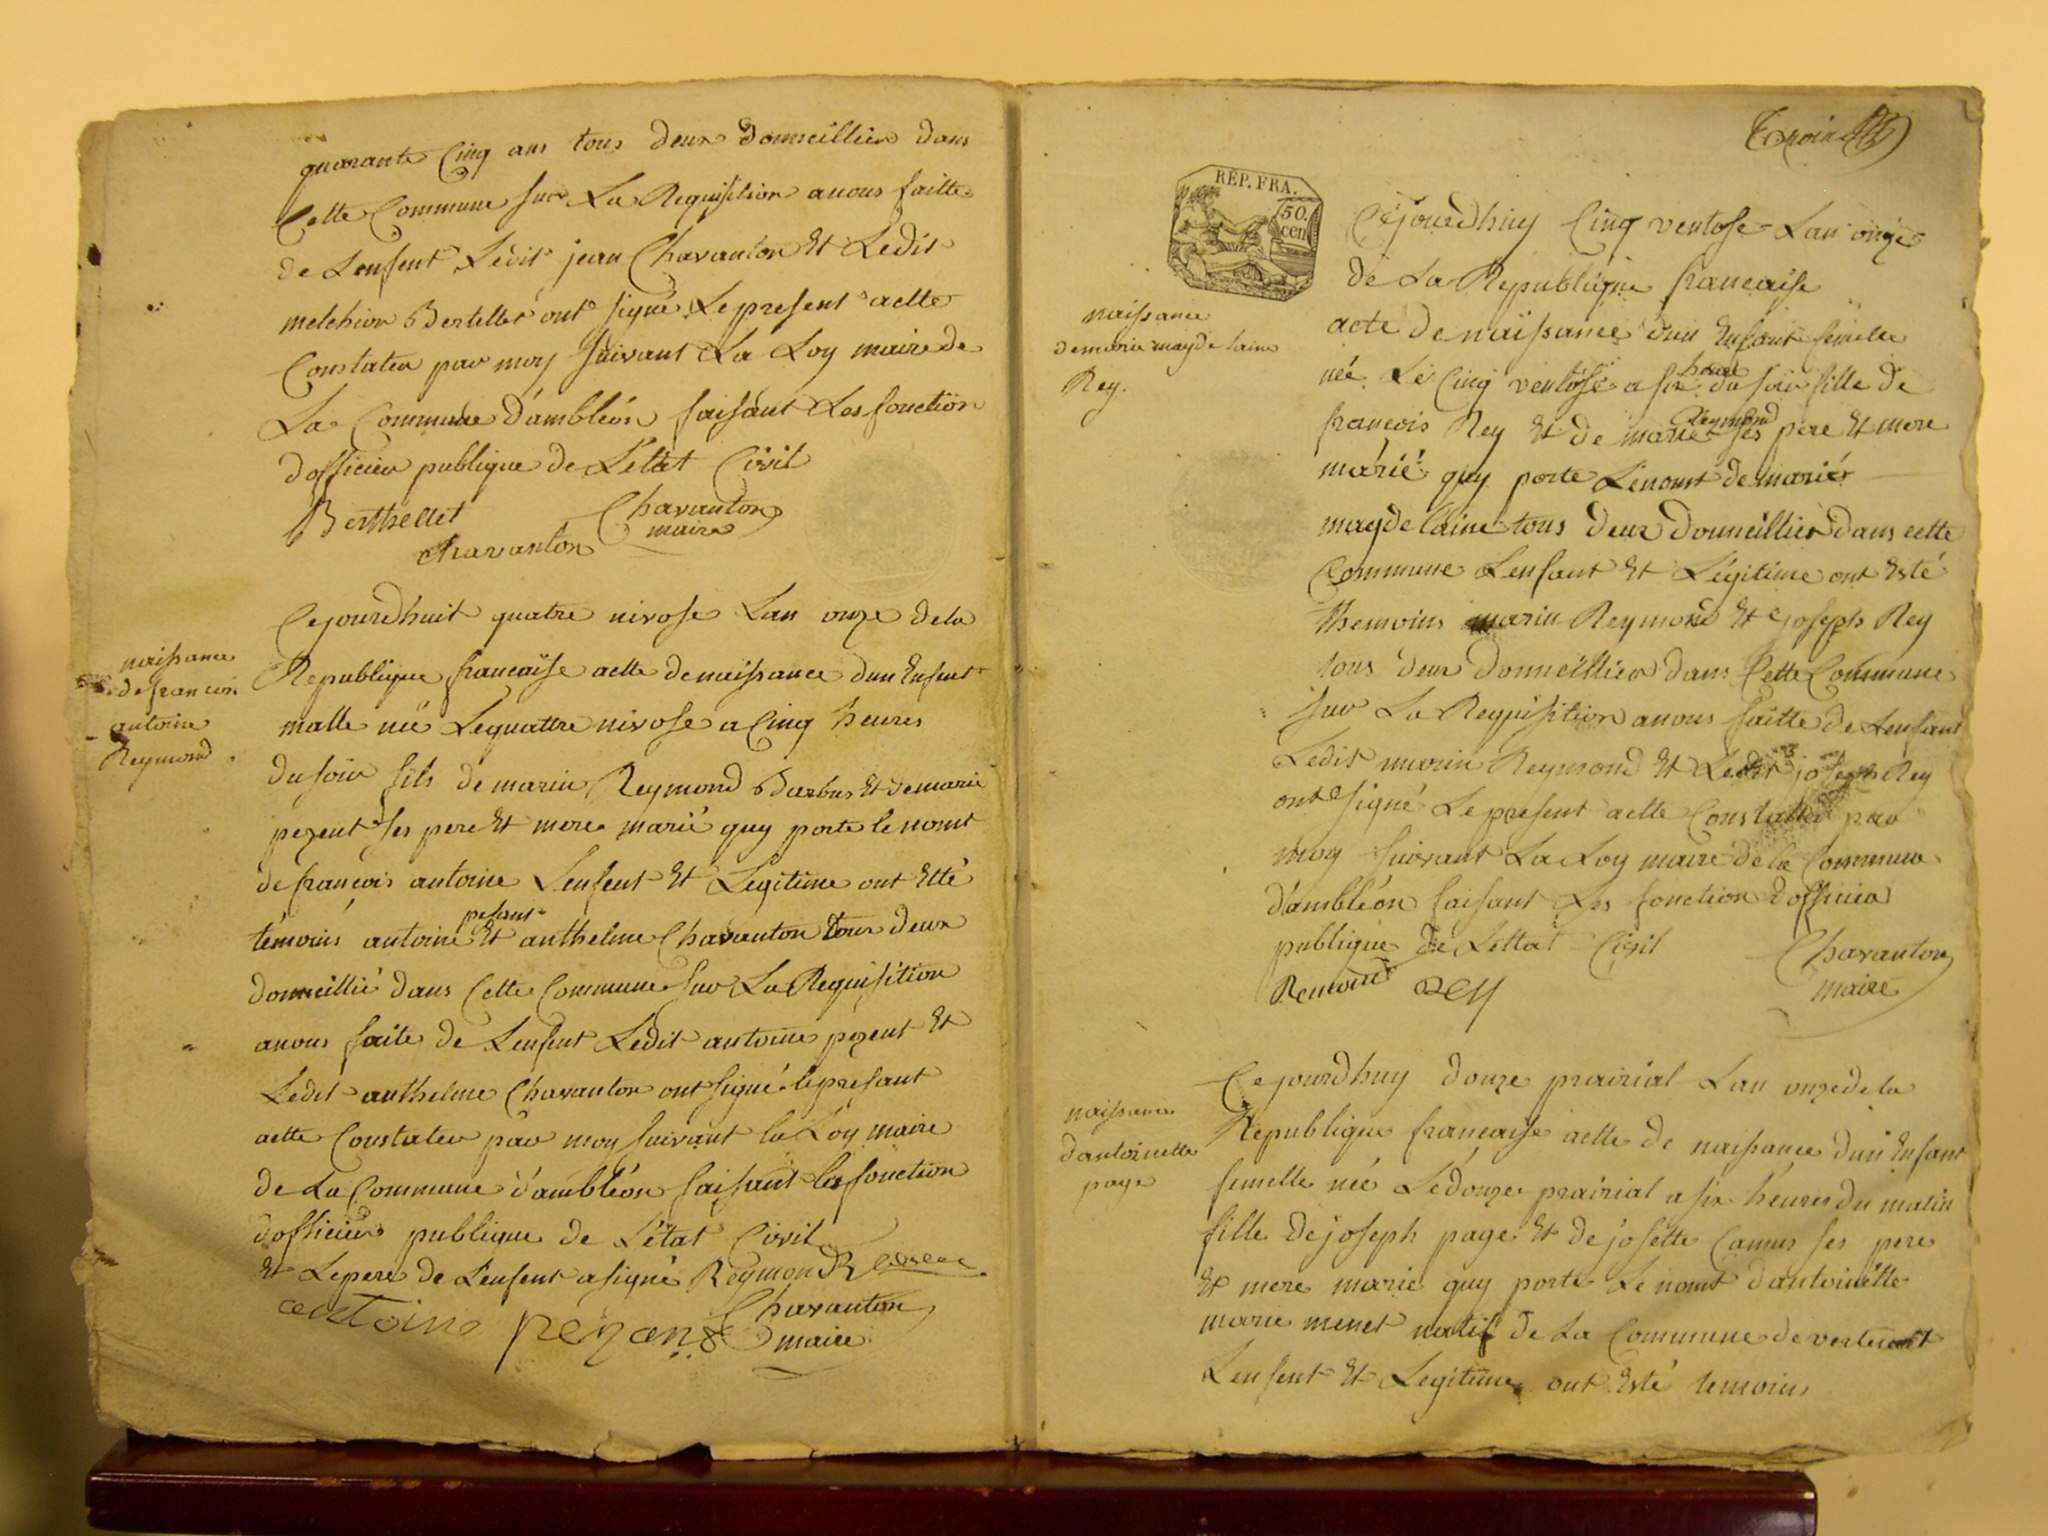 quarante Cinq ans tous deux domeillier dans
Cette Commune sur La Requisition a nous faitte
de Lenfent Ledit jean Chavanton Et Ledit
melchior Bertellet ont signé Le present actte
Constater par moy suivant La Loy maire de
La Commune d'ambléon faisant Les fonction
d'officier publique de L'ettat Civil
Berthellet Chavanton
chavanton maire
naissance
de francois
antoine
Reymond
Cejourdhuit quatre nivose Lan onze de la
Republique francaise actte de naissance dun Enfent
malle né Lequattre nivose a Cinq heures
du soir fils de marin Reymond Barbus Et de marie
pezent ses pere Et mere marié quy porte le nomt
de françois antoine Lenfent Et Legitime ont Etté
pesant
témoins antoine Et anthelme Chavanton tous deux
domeillié dans Cette Commune sur La Requisition
a nous faite de Lenfent Ledit antoine pezent Et
Ledit anthelme Chavanton ont signé le presant
actte Constater par moy suivant la Loy maire
de La Commune d'ambléon faisant les fonction
d'officier publique de L'état Civil
Et Lepere de Lenfent a signé Reymond
Chavanton
antoine pezant maire
RÉP. FRA.
50.
cen.
naissance
de marie magdelaine
Rey.
Cejourdhuy Cinq ventose Lan onze
de La Republique francaise
acte de naissance dun Enfant femelle
heure
née Le Cinq ventose a six du soir fille de
Reymond
francois Rey Et de marie ses pere Et mere
marié quy porte Lenomt de marie
magdelaine tous deux domeillier dans cette
Commune Lenfant Et Légitime ont Esté
themoins marin Reymond Et joseph Rey
tous deux domeillier dans Cette Commune
sur La Requisition a nous faitte de Lenfant
Ledit marin Reymond Et Ledit joseph Rey
ont signé Le present actte Constatter par
moy suivant La Loy maire de la Commune
d'ambléon faisant Les fonction d'officier
publique de Lettat Civil Chavanton
Remond Rey maire
naissance
dantoinette
page
Cejourdhuy douze prairial Lan onze de la
Republique francaise actte de naissance dun Enfant
femelle née Ledouze prairial a six heures du matin
fille de joseph page Et de josette Camus ses pere
Et mere marie quy porte Le nomt dantoinette
marie menet natif de La Commune de
Lenfent Et Legitime ont Esté temoins